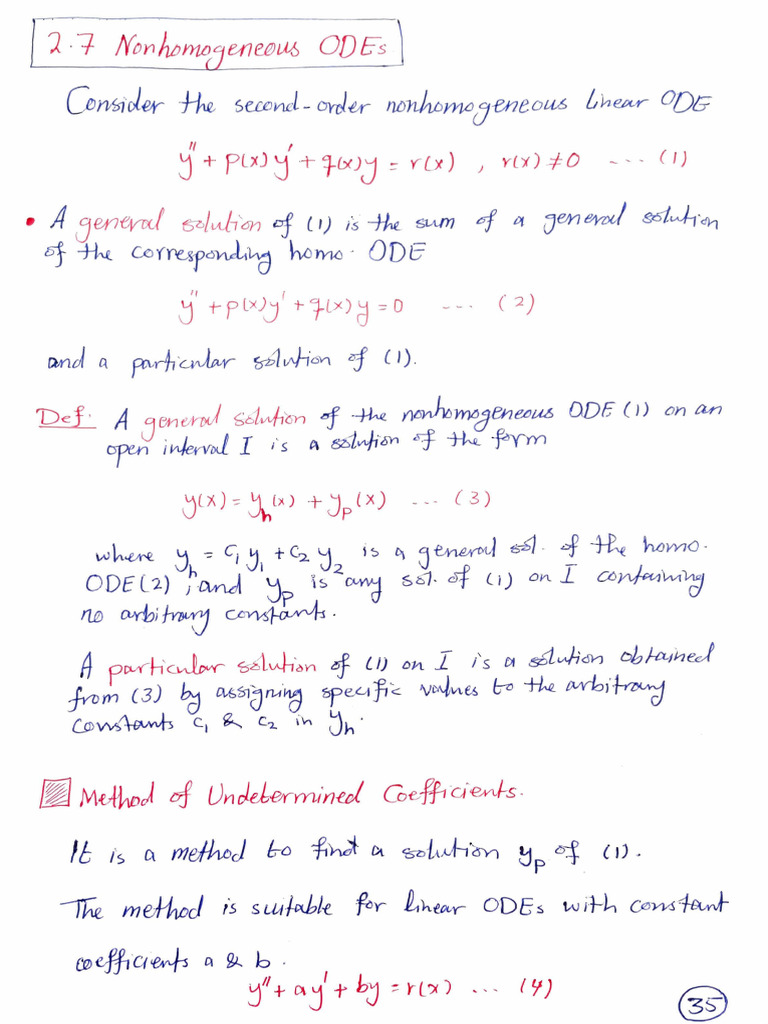 2.7 Nonhomogeneous ODEs
Consider the second-order nonhomogeneous linear ODE
y'' + p(x)y' + q(x)y = r(x) , r(x) ≠ 0 ---- (1)
• A general solution of (1) is the sum of a general solution
of the corresponding homo. ODE
y'' + p(x)y' + q(x)y = 0 ---- (2)
and a particular solution of (1).
Def. A general solution of the nonhomogeneous ODE (1) on an
open interval I is a solution of the form
y(x) = y_h(x) + y_p(x) ---- (3)
where y_h = c_1 y_1 + c_2 y_2 is a general sol. of the homo.
ODE (2), and y_p is any sol. of (1) on I containing
no arbitrary constants.
A particular solution of (1) on I is a solution obtained
from (3) by assigning specific values to the arbitrary
constants c_1 & c_2 in y_h.
Method of Undetermined Coefficients.
It is a method to find a solution y_p of (1).
The method is suitable for linear ODEs with constant
coefficients a & b.
y'' + ay' + by = r(x) --- (4)
35